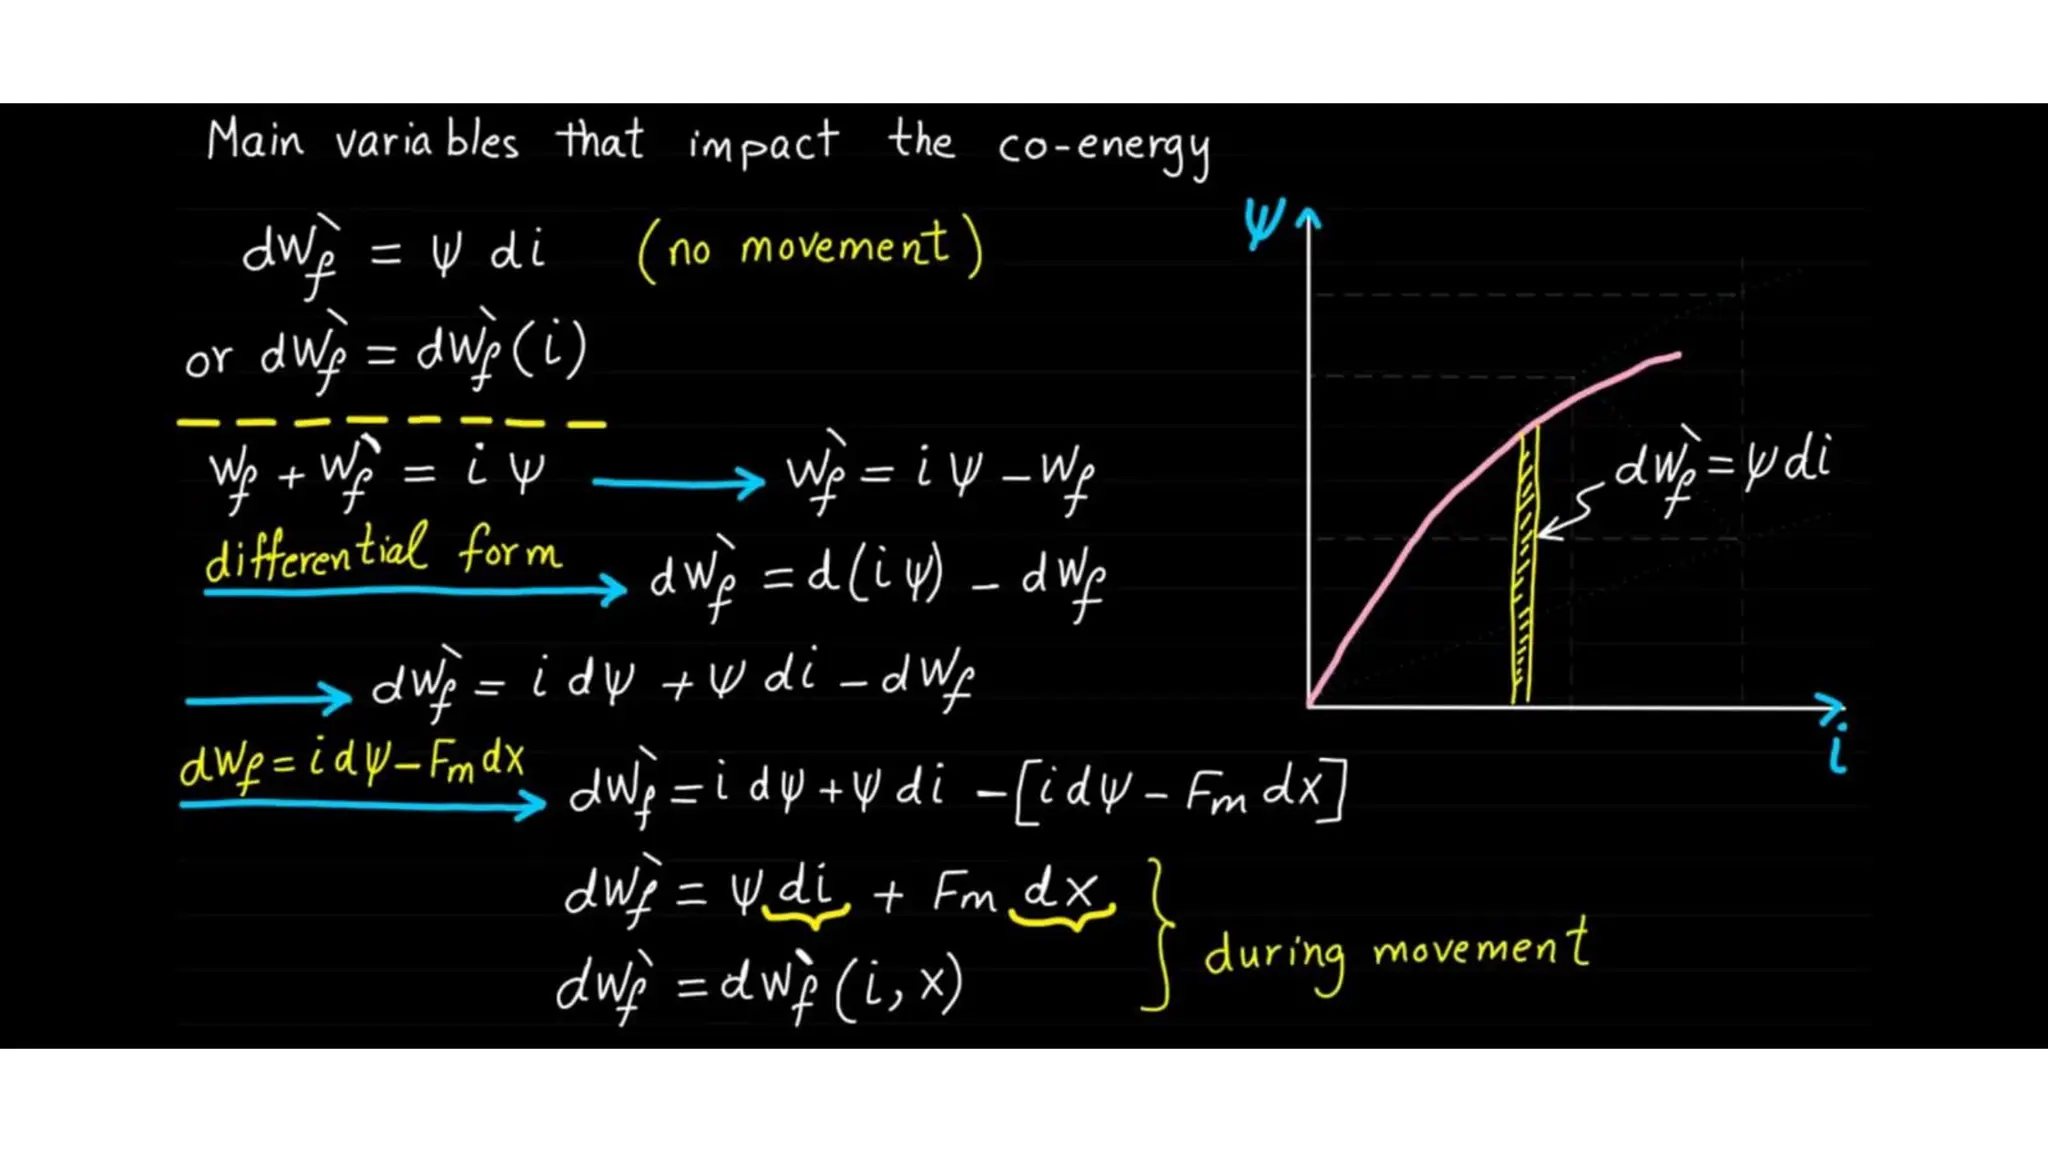 Main variables that impact the co-energy
dWf` = ψ di (no movement)
or dWf` = dWf`(i)
Wf + Wf` = i ψ → Wf` = i ψ - Wf
differential form → dWf` = d(i ψ) - dWf
→ dWf` = i dψ + ψ di - dWf
dWf = i dψ - Fm dx → dWf` = i dψ + ψ di - [i dψ - Fm dx]
dWf` = ψ di + Fm dx
dWf` = dWf`(i, x)
during movement
ψ
dWf` = ψ di
i